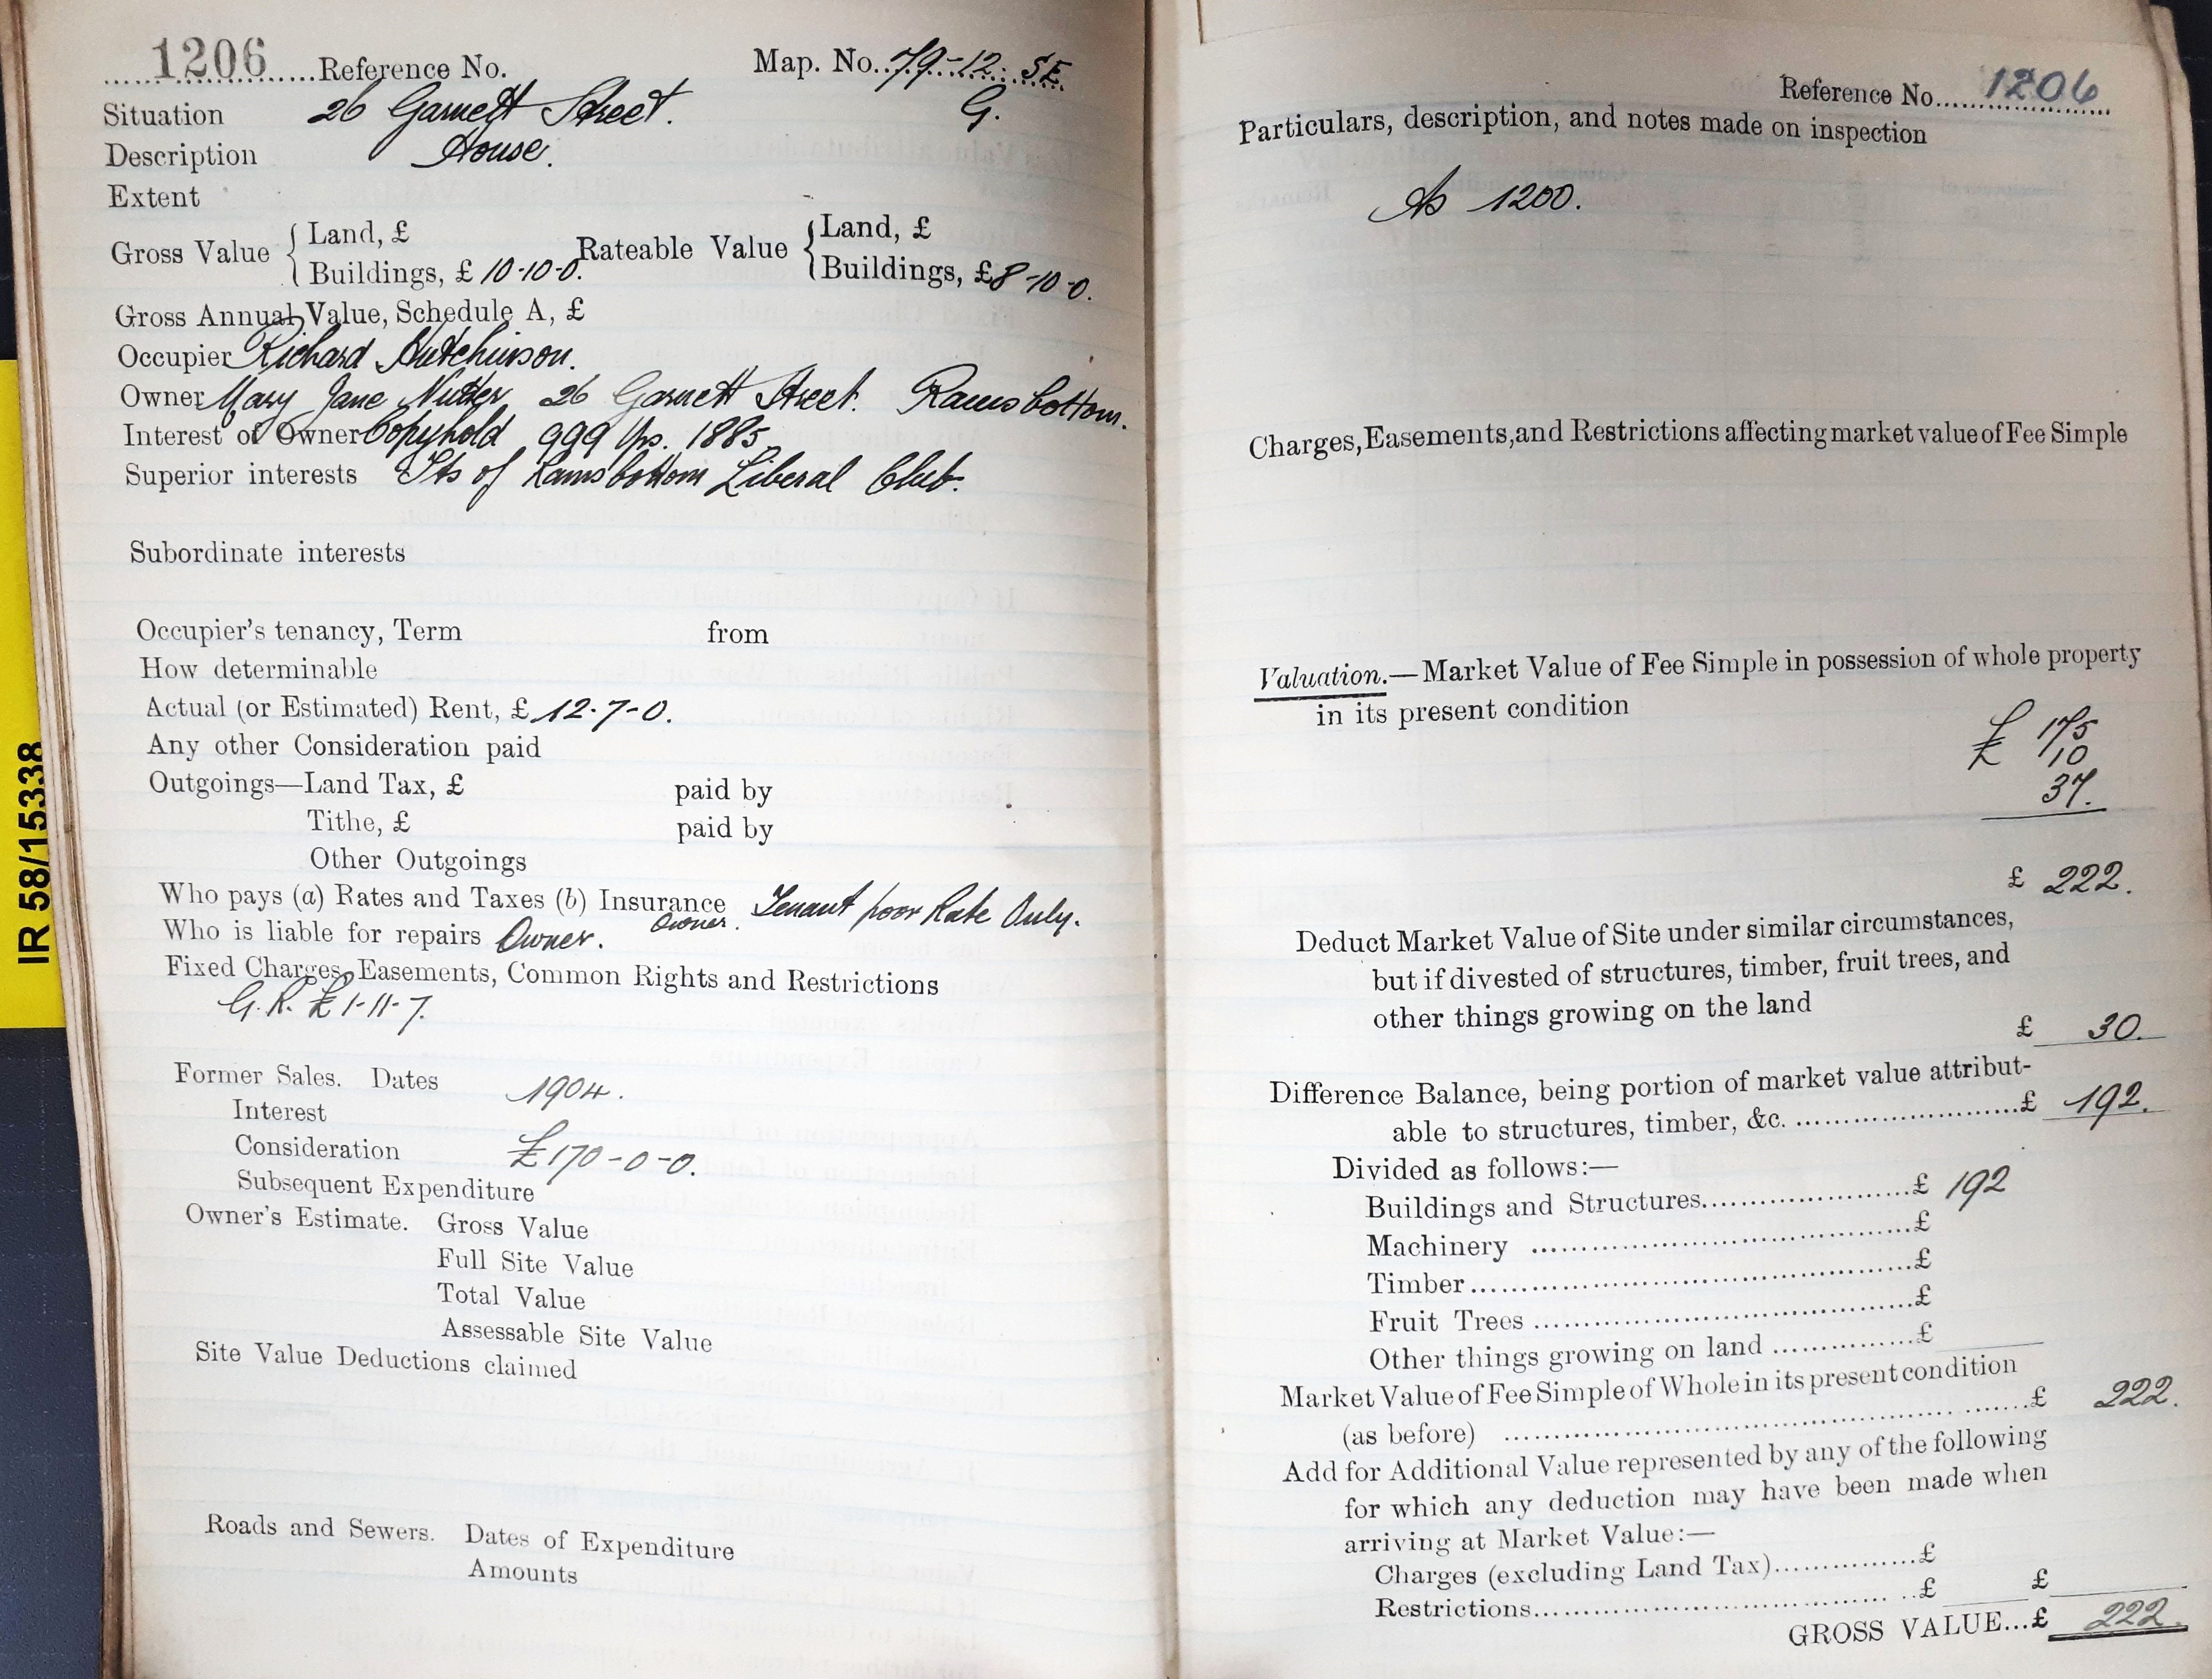 IR 58/15338
1206 Reference No. Map. No. 79-12. SE
Situation 26 Garnett Street. G.
Description House.
Extent
Gross Value { Land, £ Rateable Value { Land, £
Buildings, £ 10-10-0. Buildings, £8-10-0.
Gross Annual Value, Schedule A, £
Occupier Richard Hutchinson.
Owner Mary Jane Nutter 26 Garnett Street. Ramsbottom.
Interest of Owner Copyhold 999 Yrs. 1885
Superior interests Trs of Ramsbottom Liberal Club.
Subordinate interests
Occupier's tenancy, Term from
How determinable
Actual (or Estimated) Rent, £ 12-7-0.
Any other Consideration paid
Outgoings—Land Tax, £ paid by
Tithe, £ paid by
Other Outgoings
Who pays (a) Rates and Taxes (b) Insurance Tenant poor Rate Only.
Owner.
Who is liable for repairs Owner.
Fixed Charges, Easements, Common Rights and Restrictions
G.R. £1-11-7.
Former Sales. Dates 1904.
Interest
Consideration £170-0-0.
Subsequent Expenditure
Owner's Estimate. Gross Value
Full Site Value
Total Value
Assessable Site Value
Site Value Deductions claimed
Roads and Sewers. Dates of Expenditure
Amounts
Reference No. 1206
Particulars, description, and notes made on inspection
As 1200.
Charges, Easements, and Restrictions affecting market value of Fee Simple
Valuation.—Market Value of Fee Simple in possession of whole property
in its present condition
£ 175
£ 10
37.
£ 222.
Deduct Market Value of Site under similar circumstances,
but if divested of structures, timber, fruit trees, and
other things growing on the land
£ 30.
Difference Balance, being portion of market value attribut-
able to structures, timber, &c. £ 192.
Divided as follows:—
Buildings and Structures £ 192
Machinery £
Timber £
Fruit Trees £
Other things growing on land £
Market Value of Fee Simple of Whole in its present condition
(as before) £ 222.
Add for Additional Value represented by any of the following
for which any deduction may have been made when
arriving at Market Value:—
Charges (excluding Land Tax) £
Restrictions £ £
GROSS VALUE...£ 222.